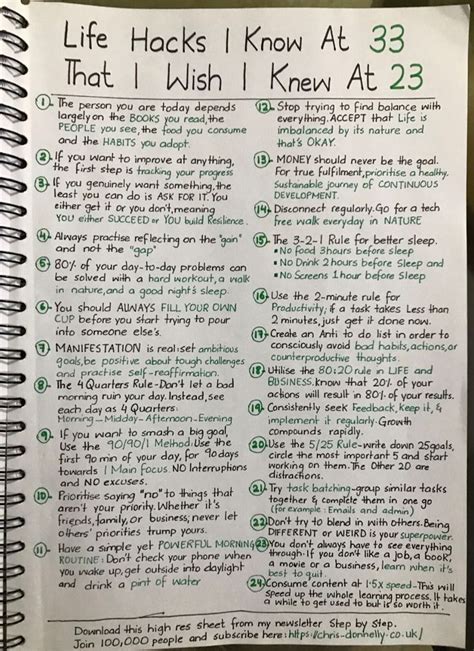 Life Hacks I Know At 33
That I Wish I Knew At 23
1- The person you are today depends
largely on the BOOKS you read, the
PEOPLE you see, the food you consume
and the HABITS you adopt.
2- If you want to improve at anything,
the first step is tracking your progress
3- If you genuinely want something, the
least you can do is ASK FOR IT. You
either get it or you don't, meaning
YOU either SUCCEED or YOU build Resilience.
4- Always practise reflecting on the "gain"
and not the "gap"
5- 80% of your day-to-day problems can
be solved with a hard workout, a walk
in nature, and a good night's sleep.
6- You should ALWAYS FILL YOUR OWN
CUP before you start trying to pour
into someone else's.
7- MANIFESTATION is real: set ambitious
goals, be positive about tough challenges
and practise self-reaffirmation.
8- The 4 Quarters Rule - Don't let a bad
morning ruin your day. Instead, see
each day as 4 Quarters:
Morning - Midday - Afternoon - Evening
9- If you want to smash a big goal,
Use the 90/90/1 Method: Use the
first 90 min of your day, for 90 days
towards 1 Main focus. NO Interruptions
and NO excuses.
10- Prioritise saying "no" to things that
aren't your priority. Whether it's
friends, family, or business; never let
others' priorities trump yours.
11- Have a simple yet POWERFUL MORNING
ROUTINE: Don't check your phone when
you wake up, get outside into daylight
and drink a pint of water
12- Stop trying to find balance with
everything. ACCEPT that Life is
imbalanced by its nature and
that's OKAY.
13- MONEY should never be the goal.
For true fulfilment, prioritise a healthy,
Sustainable journey of CONTINUOUS
DEVELOPMENT.
14- Disconnect regularly. Go for a tech
free walk everyday in NATURE
15- The 3-2-1 Rule for better sleep.
• No food 3 hours before sleep
• No Drink 2 hours before Sleep and
• No Screens 1 hour before Sleep
16- Use the 2-minute rule for
Productivity; if a task takes Less than
2 minutes, just get it done now.
17- Create an Anti to do list in order to
consciously avoid bad habits, actions, or
counterproductive thoughts.
18- Utilise the 80:20 rule in LIFE and
BUSINESS. Know that 20% of your
actions will result in 80% of your results.
19- Consistently seek Feedback, Keep it, &
implement it regularly. Growth
compounds rapidly.
20- Use the 5/25 Rule - write down 25 goals,
circle the most important 5 and start
working on them. The Other 20 are
distractions.
21- Try task batching - group similar tasks
together & complete them in one go
(for example: Emails and admin)
22- Don't try to blend in with others. Being
DIFFERENT or WEIRD is your superpower.
23- You don't always have to see everything
through. If you don't like a job, a book,
a movie or a business, learn when it's
best to quit.
24- Consume content at 1.5x speed - This will
Speed up the whole learning process. It takes
a while to get used to but is so worth it.
Download this high res sheet from my newsletter Step by Step.
Join 100,000 people and subscribe here: https://chris-donnelly.co.uk/